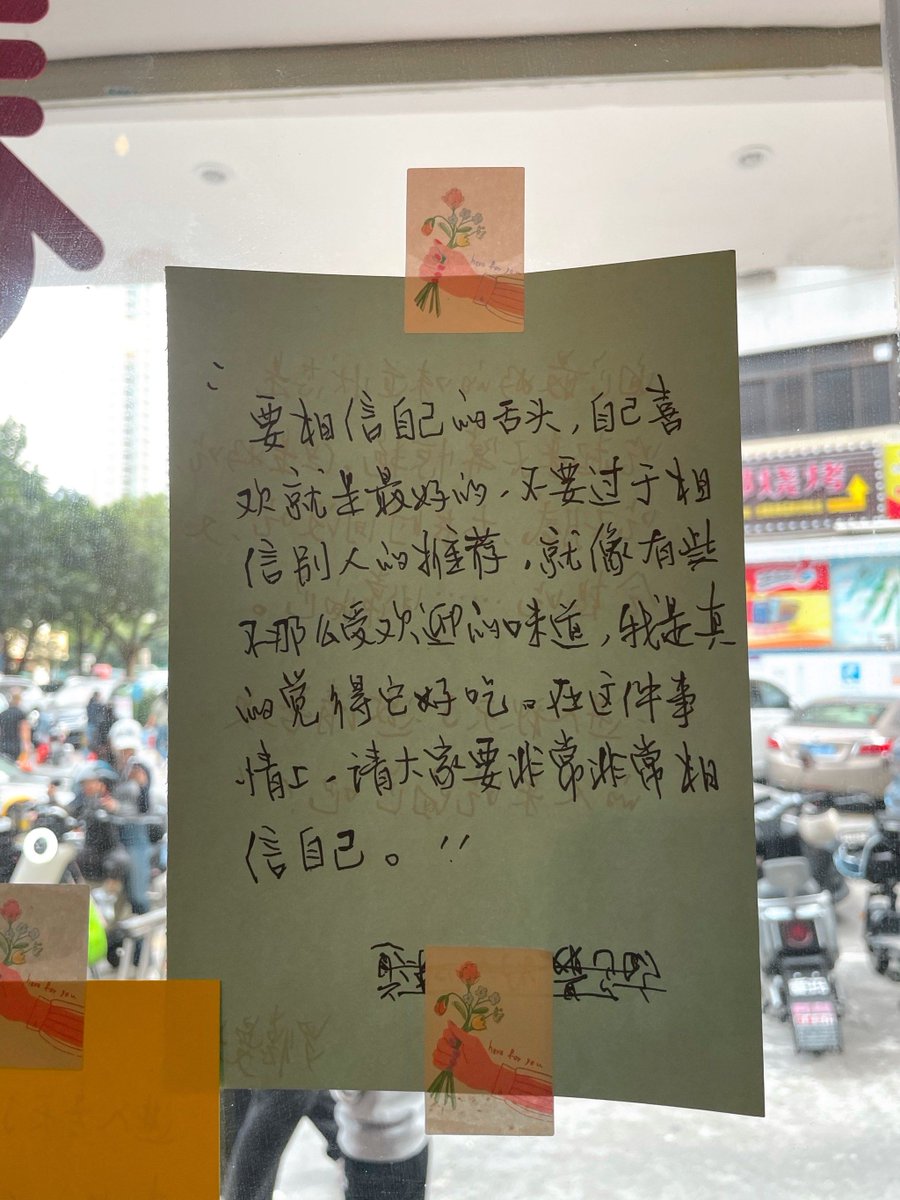 here for you
“
要相信自己的舌头,自己喜
欢就是最好的,不要过于相
信别人的推荐,就像有些
不那么受欢迎的味道,我是真
的觉得它好吃。在这件事
情上,请大家要非常非常相
信自己。”
烧烤
here for you
here for you